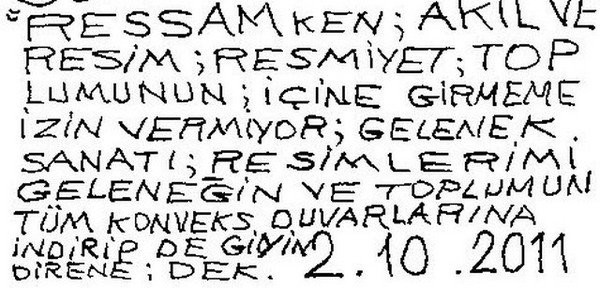 RESSAM KEN; AKIL VE
RESİM; RESMİYET; TOP
LUMUNUN; İÇİNE GİRMEME
İZİN VERMIYOR; GELENEK.
SANATI; RESİMLERİMİ
GELENEĞİN VE TOPLUMUN
TÜM KONVEKS DUVARLARINA
İNDİRİP DE GİYİN
DIRENE; DEK. 2.10.2011